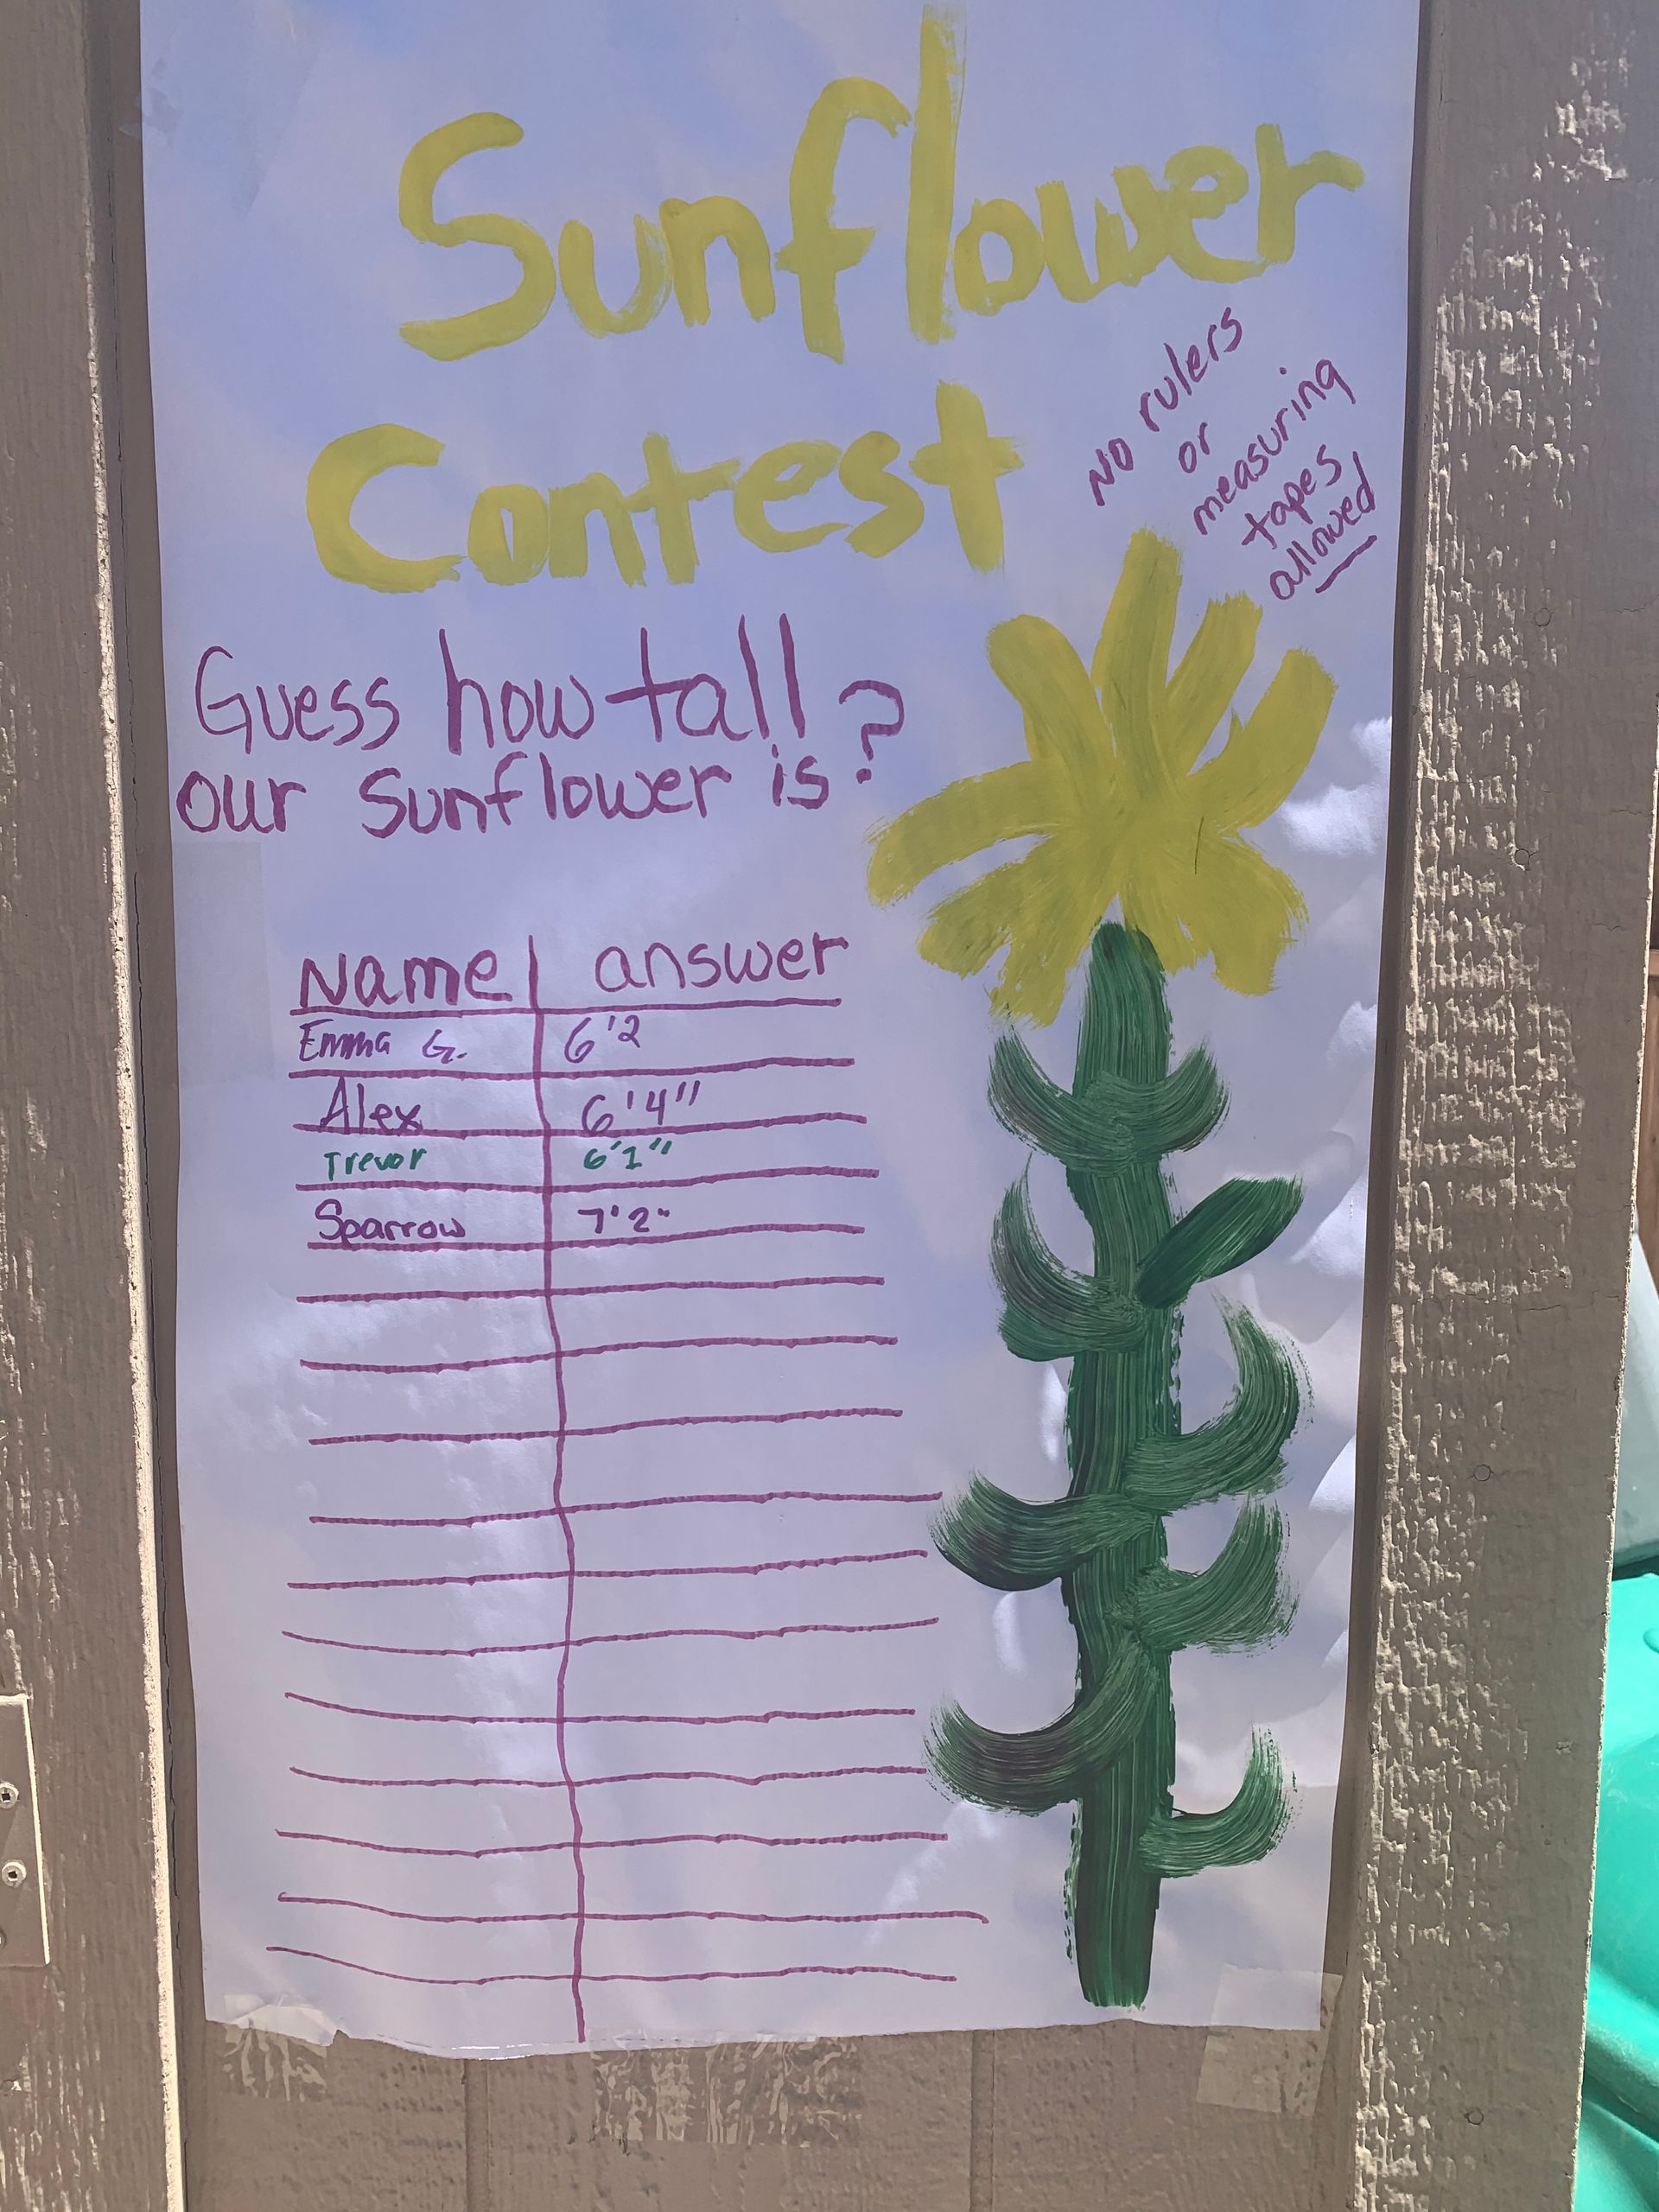 Sunflower
Contest
No rulers
or
measuring
tapes
allowed
Guess how tall
our Sunflower is?
Name answer
Emma G. 6'2
Alex 6'4"
Trevor 6'1"
Sparrow 7'2"